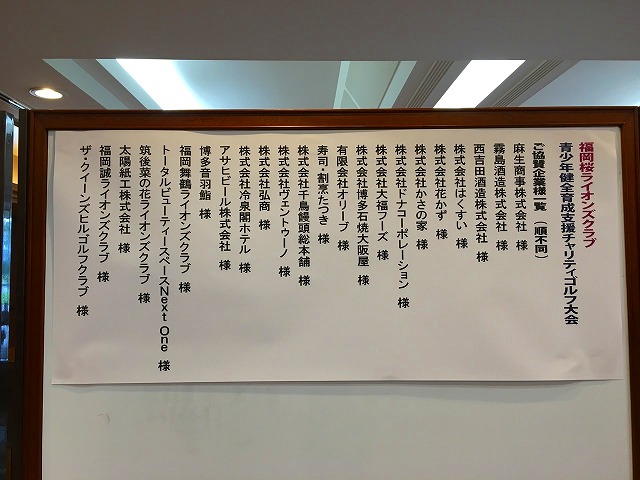 福岡桜ライオンズクラブ
青少年健全育成支援チャリティゴルフ大会
ご協賛企業様一覧 (順不同)
麻生商事株式会社 様
霧島酒造株式会社 様
西吉田酒造株式会社 様
株式会社はくすい 様
株式会社花かず 様
株式会社かさの家 様
株式会社ドナコーポレーション 様
株式会社大福フーズ 様
株式会社博多石焼大阪屋 様
有限会社オリーブ 様
寿司・割烹たつき 様
株式会社千鳥饅頭総本舗 様
株式会社ヴェントゥーノ 様
株式会社弘商 様
株式会社冷泉閣ホテル 様
アサヒビール株式会社 様
博多音羽鮨 様
福岡舞鶴ライオンズクラブ 様
トータルビューティースペースNext One 様
筑後菜の花ライオンズクラブ 様
太陽紙工株式会社 様
福岡誠ライオンズクラブ 様
ザ・クイーンズヒルゴルフクラブ 様